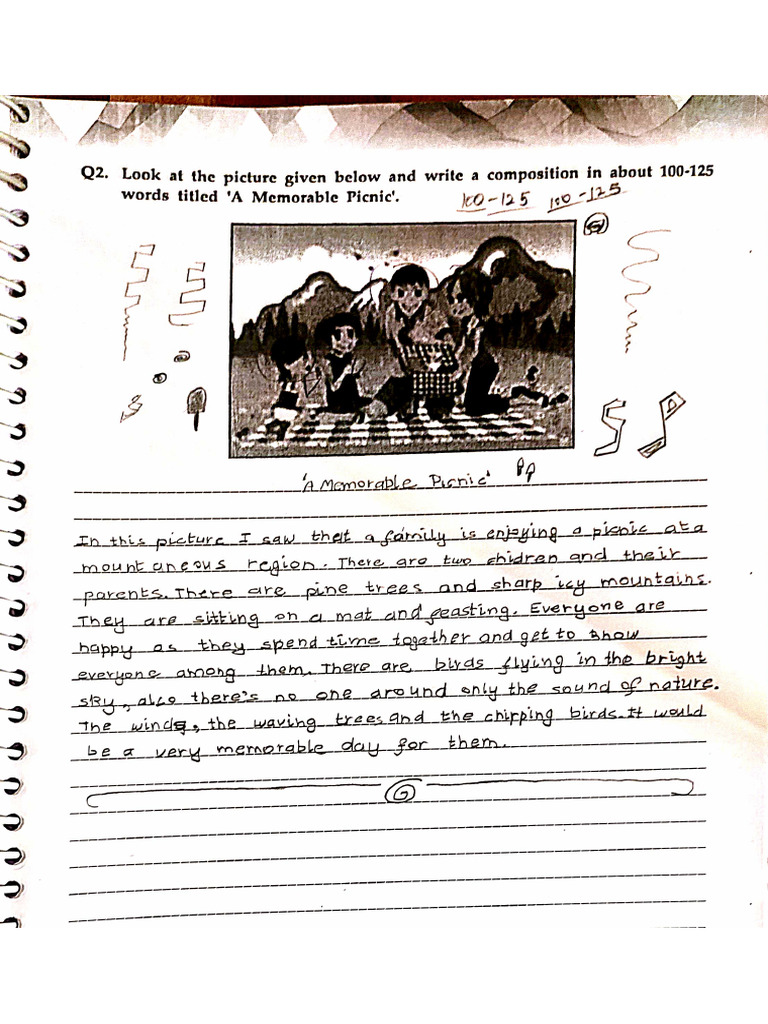 Q2. Look at the picture given below and write a composition in about 100-125
words titled 'A Memorable Picnic'.
100-125 100-125
'A Memorable Picnic'
In this picture I saw that a family is enjoying a picnic at a
mountaneous region. There are two chidren and their
parents. There are pine trees and sharp icy mountains.
They are sitting on a mat and feasting. Everyone are
happy as they spend time together and get to know
everyone among them. There are birds flying in the bright
sky, also there's no one around only the sound of nature.
The winds, the waving trees and the chipping birds. It would
be a very memorable day for them.